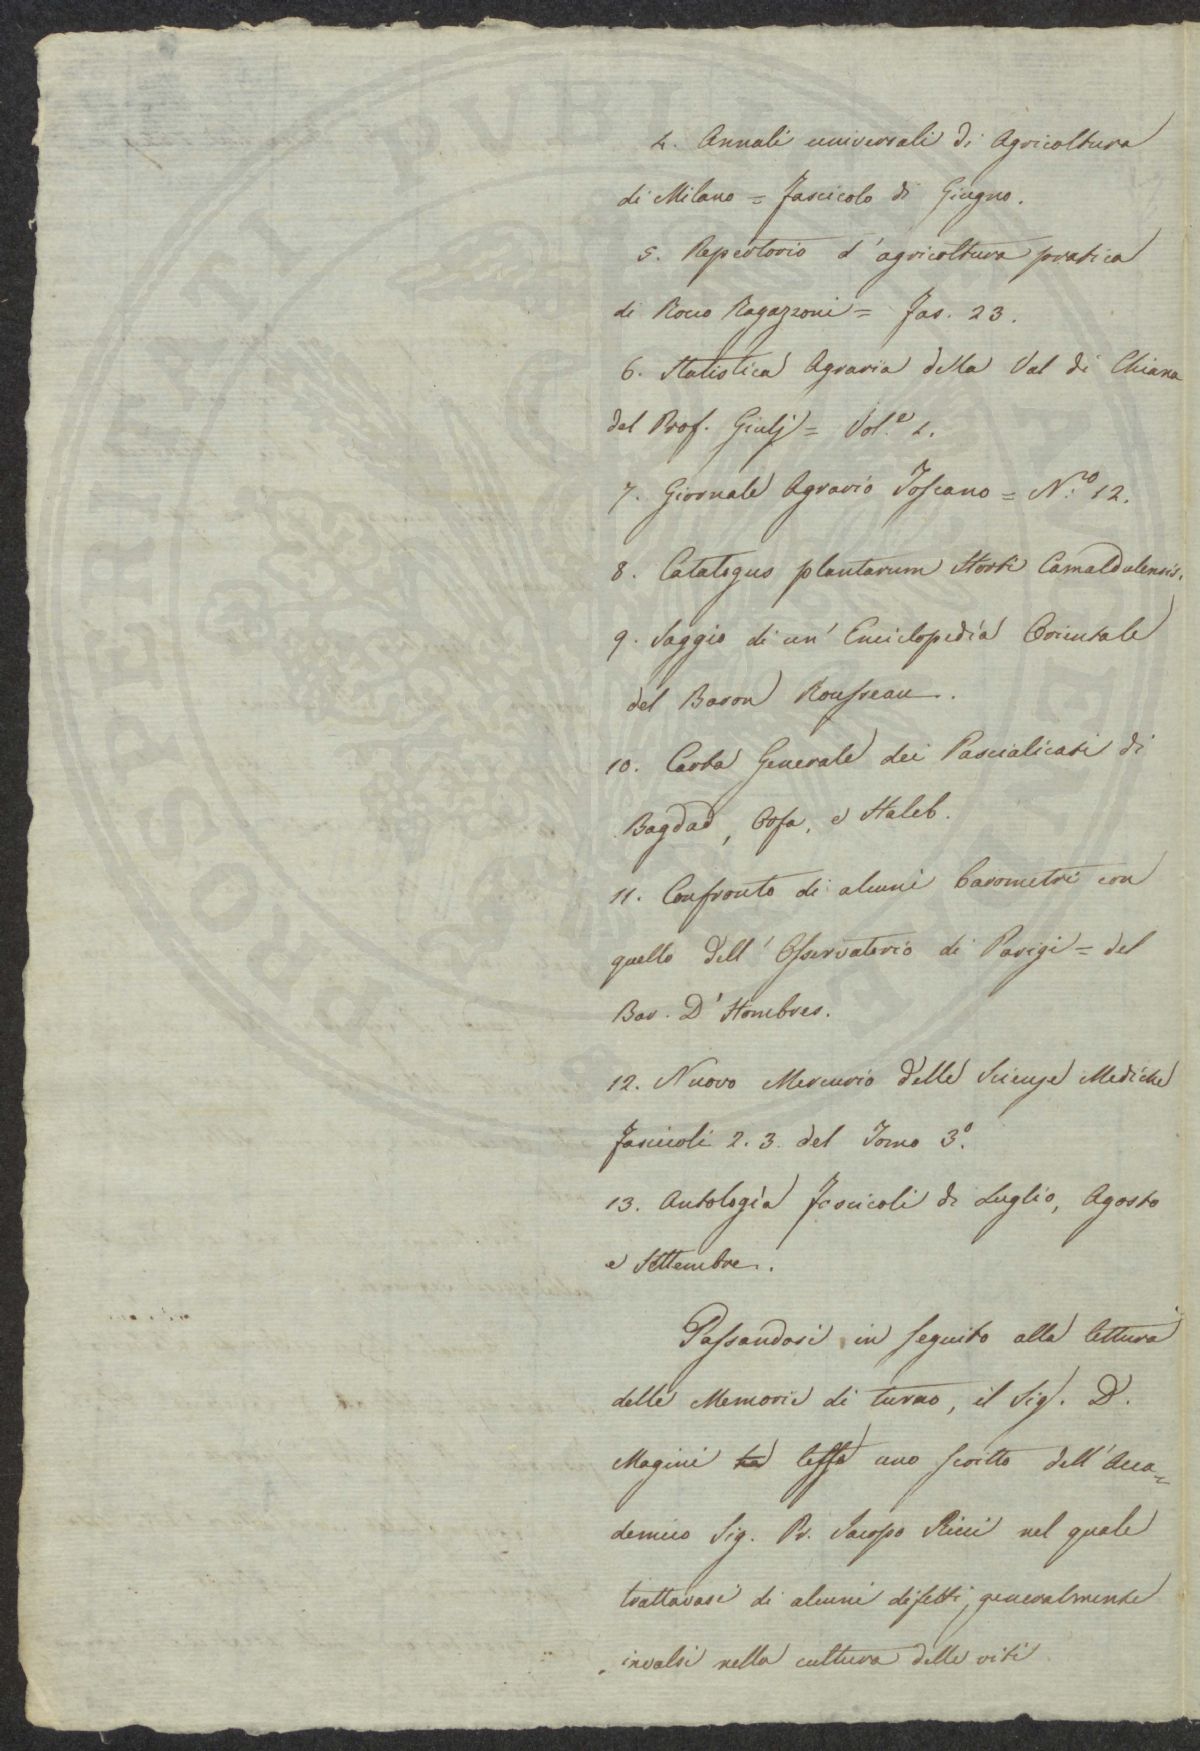 4. Annali universali di Agricoltura
di Milano = Fascicolo di Giugno.
5. Repertorio d'agricoltura pratica
di Rocco Ragazzoni = Fas. 23.
6. Statistica Agraria della Val di Chiana
del Prof. Giulj = Vol.e 1.
7. Giornale Agrario Toscano = N.ro 12.
8. Catalogus plantarum Horti Camaldulensis.
9. Saggio di un' Enciclopedia Orientale
del Baron Rousseau.
10. Carta Generale dei Pascialicati di
Bagdad, Orfa, e Haleb.
11. Confronto di alcuni barometri con
quello dell' Osservatorio di Parigi = del
Bar. D'Hombres.
12. Nuovo Mercurio delle Scienze Mediche
Fascicoli 2. 3. del Tomo 3.º
13. Antologia Fascicoli di Luglio, Agosto
e Settembre.
Passandosi in seguito alla lettura
delle Memorie di turno, il Sig. D.
Magini ha lesse uno scritto dell' Acca=
demico Sig. Pr. Jacopo Ricci nel quale
trattavasi di alcuni difetti generalmente
invalsi nella cultura delle viti